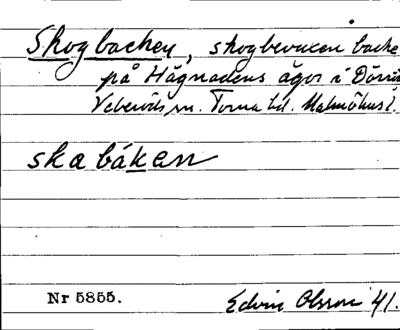 Skogbacken, skogbevuxen backe
på Hägnadens ägor i Dörrö
Veberöds sn. Torna hd. Malmöhus l.
skabákan
Nr 5855.
Edvin Olsson 41.